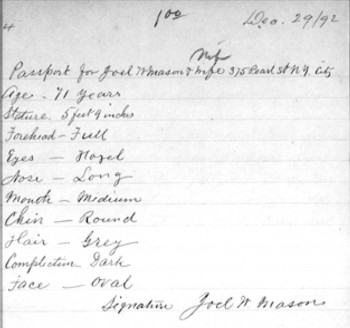 4
1 00
Dec. 29/92
Wife
Passport for Joel W Mason & Wife 375 Pearl St N.Y. City
Age - 71 Years
Stature 5 feet 9 inches
Forehead - Full
Eyes - Hazel
Nose - Long
Mouth - Medium
Chin - Round
Hair - Grey
Complection Dark
Face - Oval
Signature Joel W Mason